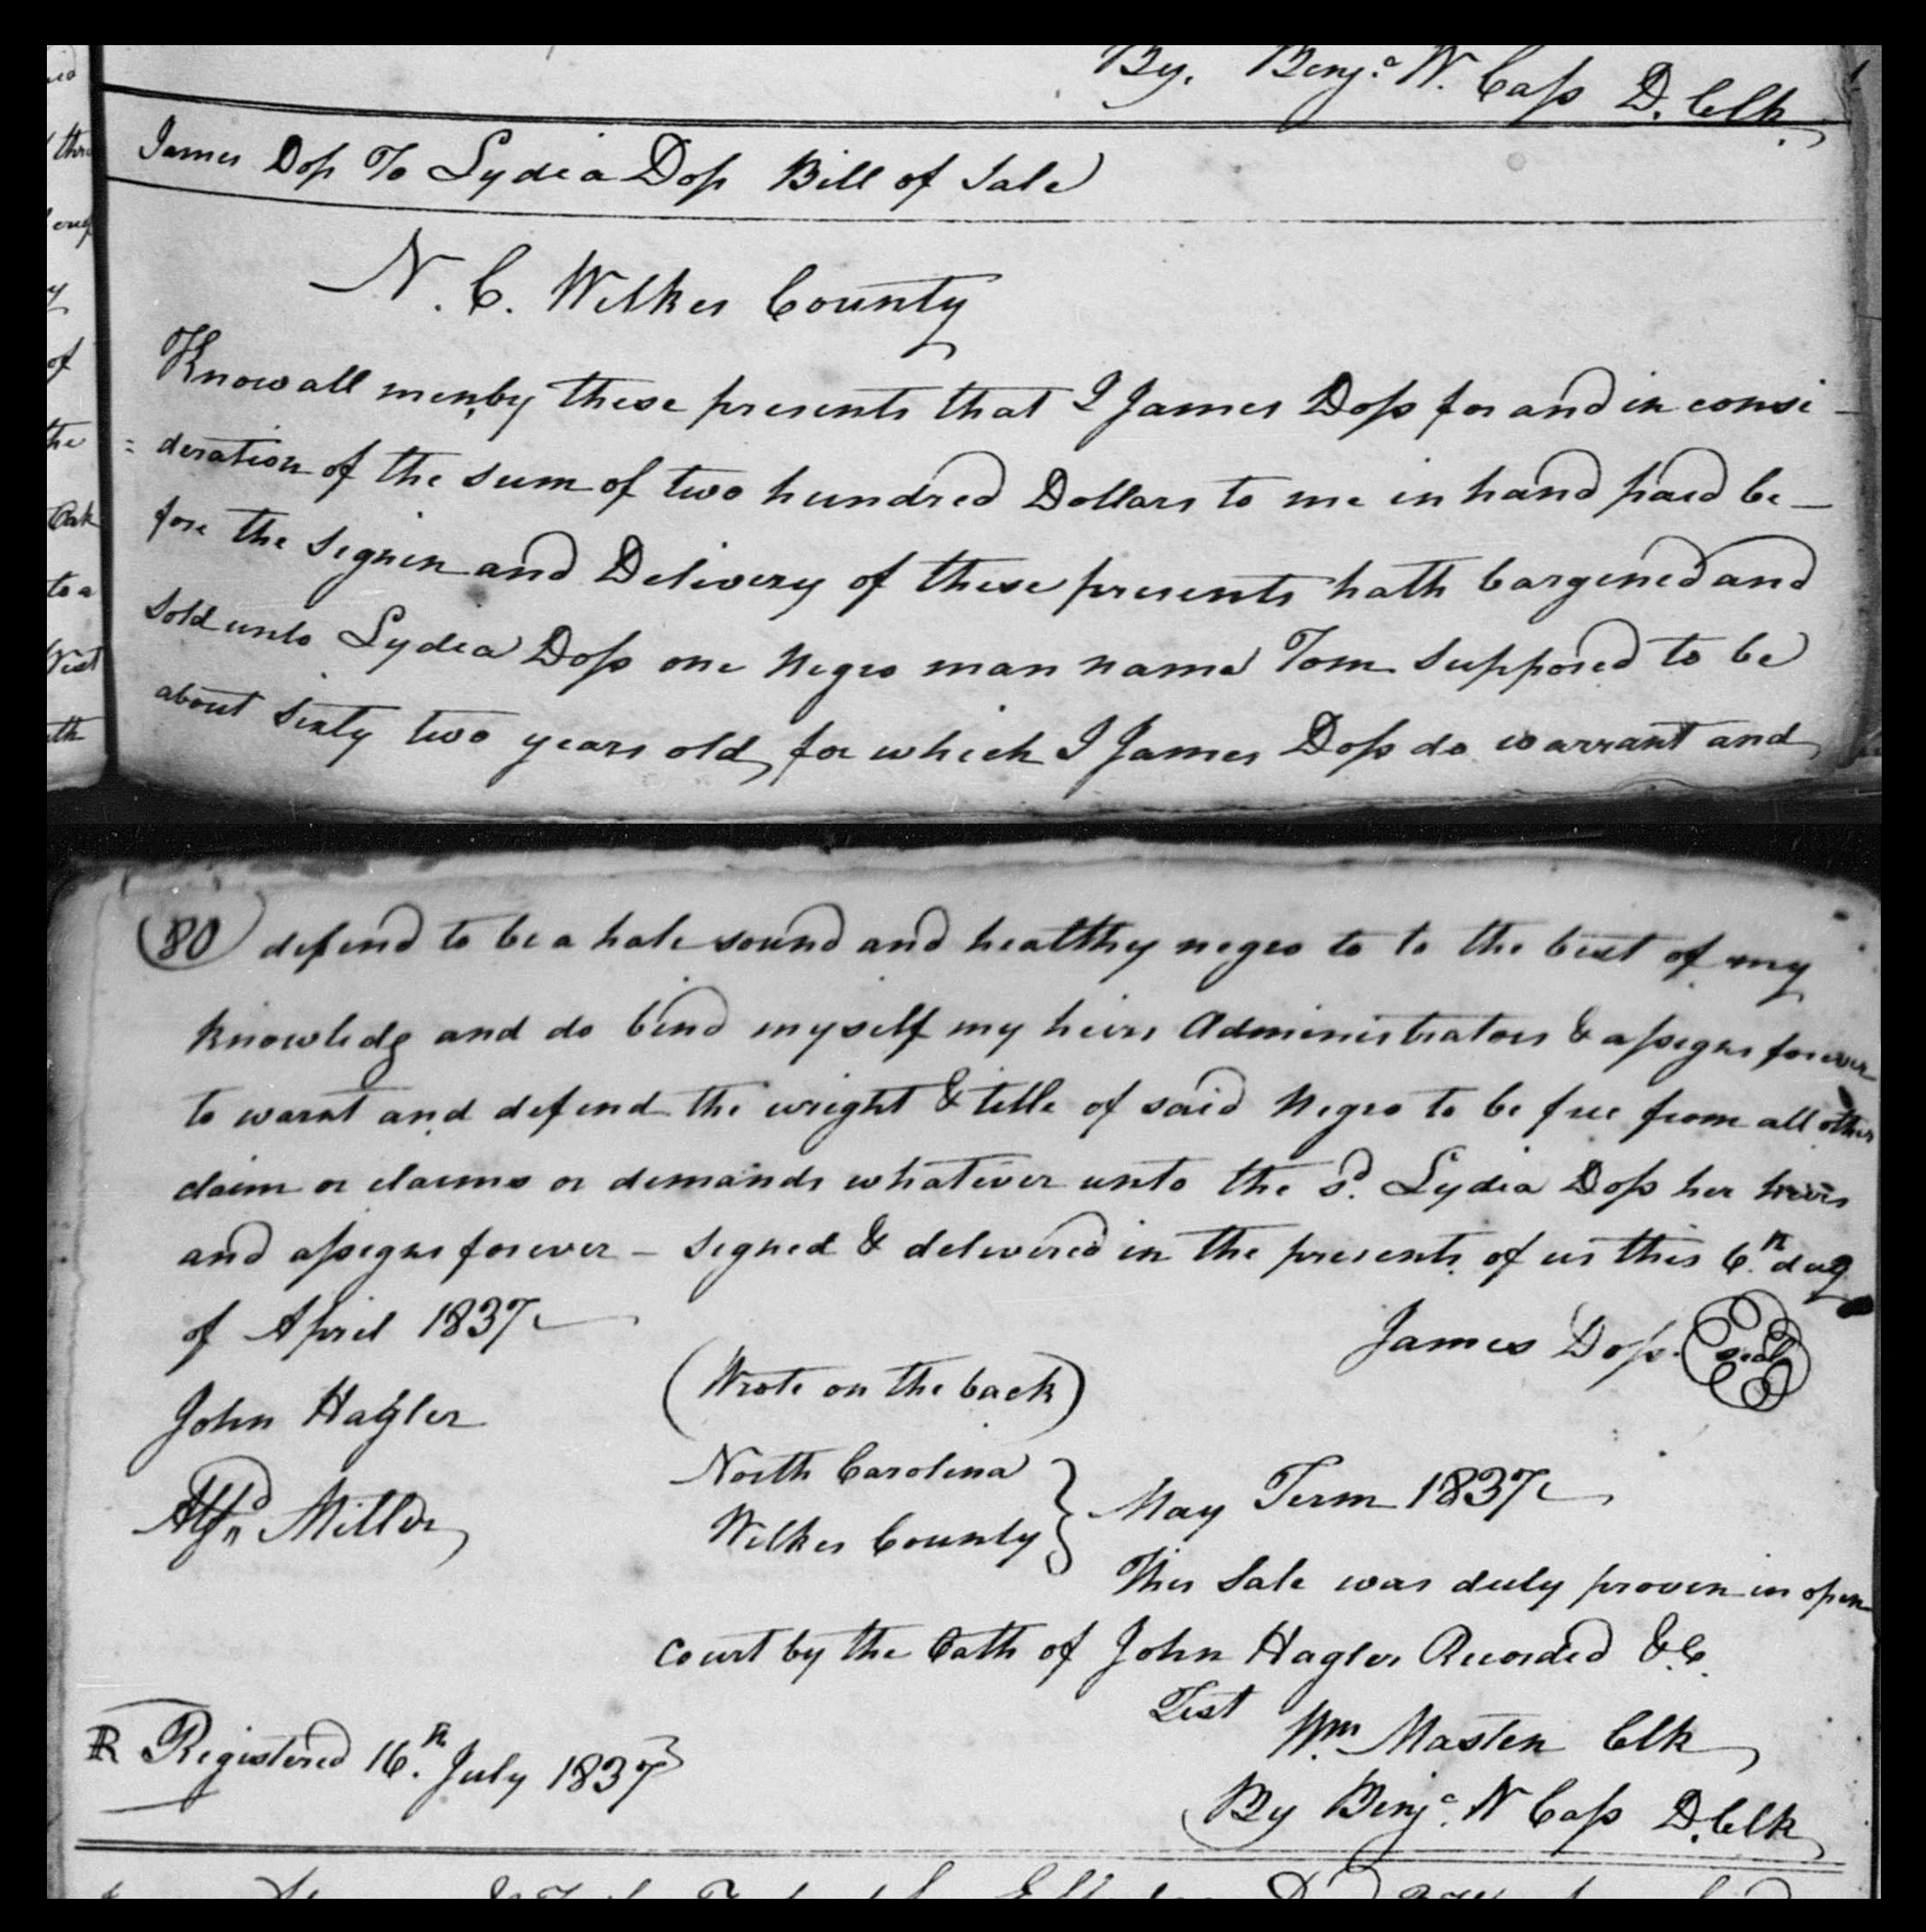 By. Benj.a W. Cass D. Clk.
James Doss To Lydia Doss Bill of Sale
N. C. Wilkes County
Know all men by these presents that I James Doss for and in consi-
= deration of the sum of two hundred Dollars to me in hand paid be-
fore the signen and Delivery of these presents hath bargened and
Sold unto Lydia Doss one Negro man name Tom supposed to be
about sixty two years old, for which I James Doss do warrant and
(80) defend to be a hale sound and healthy negro to to the best of my
knowledg and do bind myself my heirs Administrators & assigns forever
to warnt and defend the wright & title of said Negro to be free from all other
claim or claims or demands whatever unto the sd. Lydia Doss her heirs
and assigns forever - signed & delivered in the presents of us this 6.th day
of April 1837
James Doss. seal
(Wrote on the back)
John Hagler
Alfd. Miller
North Carolina
Wilkes County } May Term 1837
This Sale was duly proven in open
court by the Oath of John Hagler Recorded &C.
Test Wm. Masten Clk
R Registered 16.th July 1837
By Benj.a W Cass D. Clk